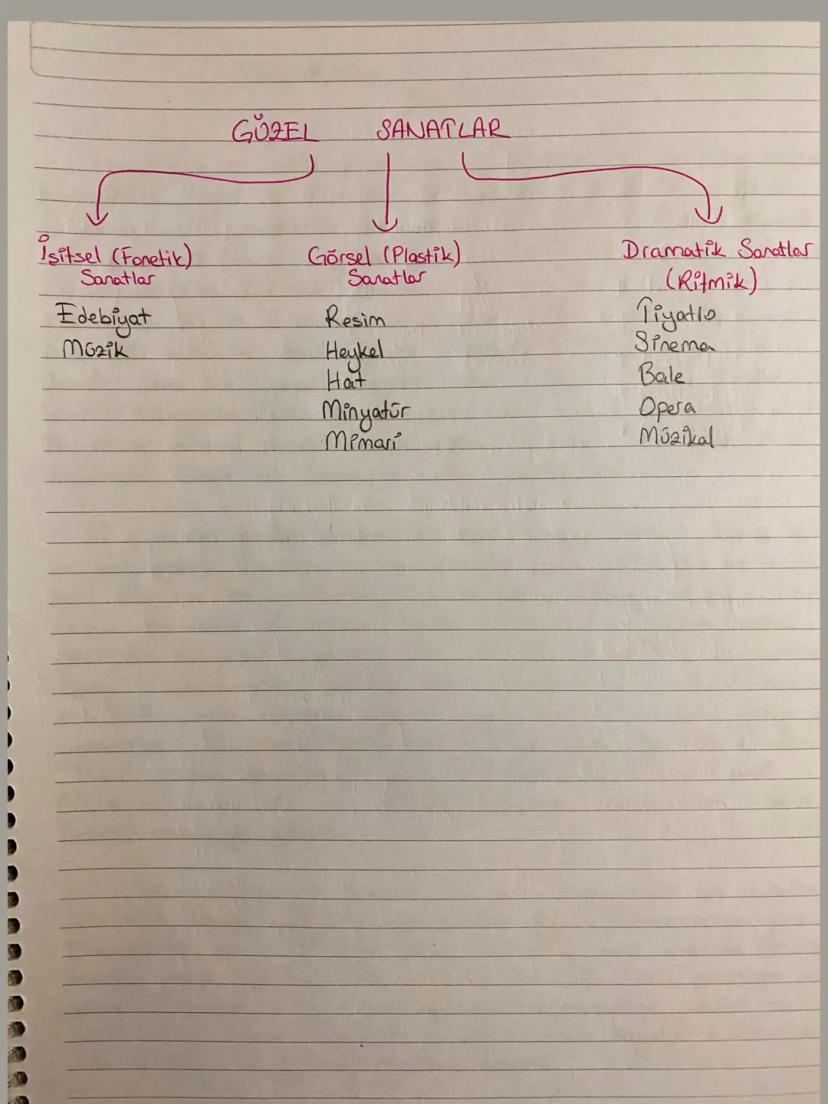 GÜZEL SANATLAR
İşitsel (Fonetik)
Sanatlar
Edebiyat
Müzik
Görsel (Plastik)
Sanatlar
Resim
Heykel
Hat
Minyatür
Mimari
Dramatik Sanatlar
(Ritmik)
Tiyatro
Sinema
Bale
Opera
Müzikal